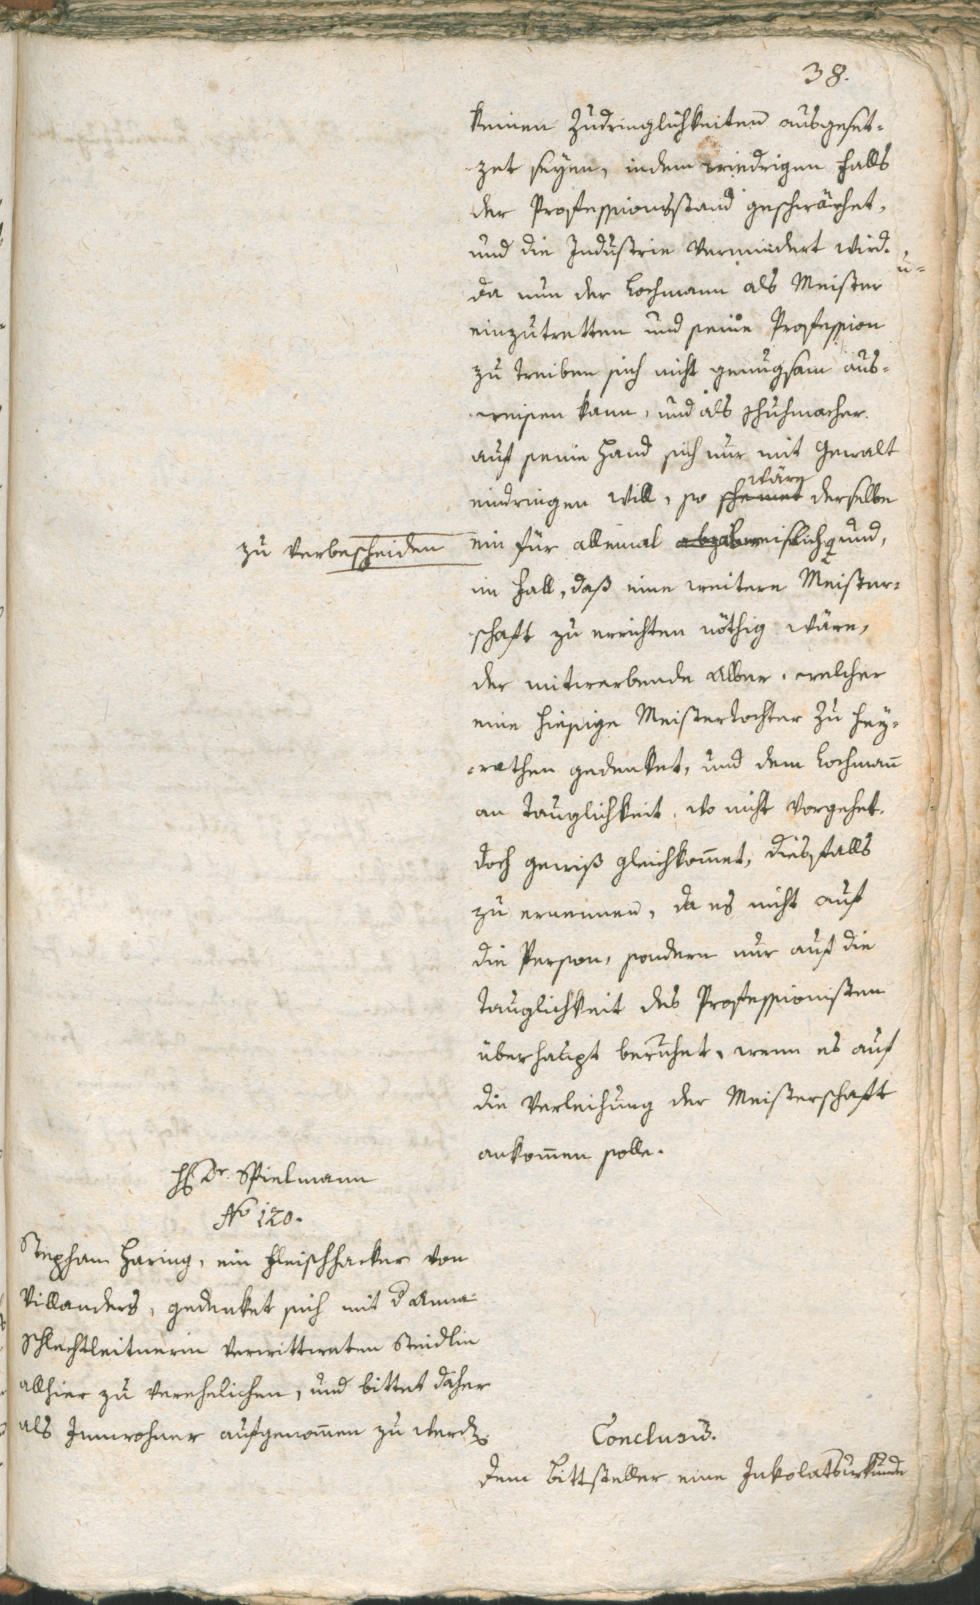 38.
keinen Zudringlichkeiten ausgeset-
zet seyen, indem wiedrigen Falls
der Professionsstand geschwächet,
und die Industrie vermindert wird.
Da nun der Lochmann als Meister
einzutretten und seine Profession
zu treiben sich nicht genugsam aus-
weisen kann, und als Schuhmacher
auf seine Hand sich nur mit Gewalt
eindringen will, so scheinet wäre derselbe
zu verbescheiden
ein für allemal abzuweislich und,
im Fall, daß eine weitere Meister-
schaft zu errichten nöthig wäre,
der mitwerbende Alber, welcher
eine hiesige Meisterstochter zu hey-
rathen gedenket, und dem Lochmañ
an Tauglichkeit, wo nicht vorgehet,
doch gewiß gleichkom̄et, diesfalls
zu ernennen, da es nicht auf
die Person, sondern nur auf die
Tauglichkeit des Professionisten
überhaupt beruhet, wenn es auf
die Verleihung der Meisterschaft
ankom̄en solle.
H Dr. Spielmann
No 120.
Stephan Haring, ein Fleischhacker von
Villanders, gedenket sich mit d Anna
Schlechtleitnerin verwittweten Steidlin
allhier zu verehelichen, und bittet daher
als Innwohner aufgenom̄en zu werdē.
Conclusū.
Dem Bittsteller eine Inkolatsurkunde